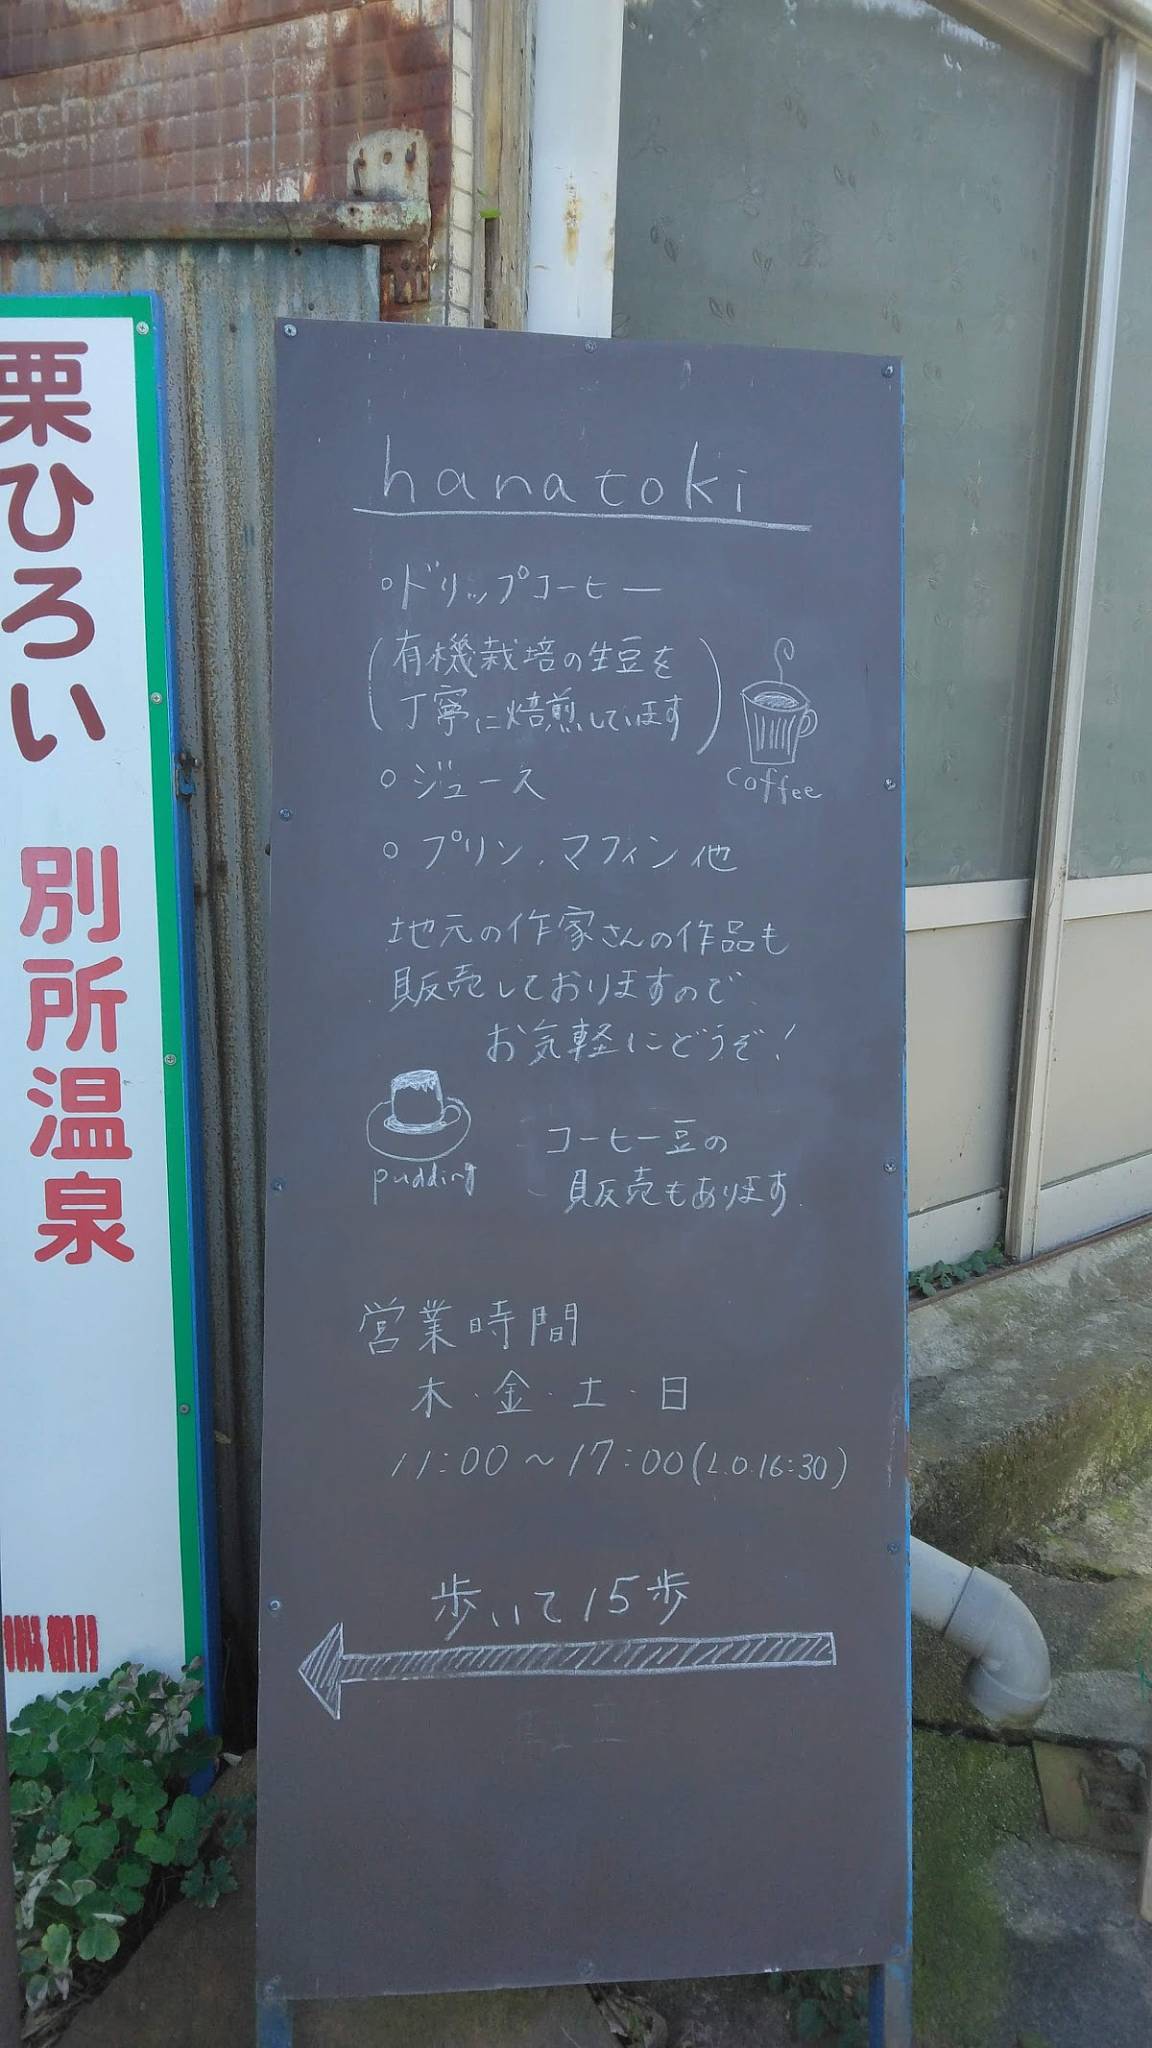 栗ひろい 別所温泉
hanatoki
○ドリップコーヒー
(有機栽培の生豆を
丁寧に焙煎しています)
coffee
○ジュース
○プリン、マフィン他
地元の作家さんの作品も
販売しておりますので
お気軽にどうぞ!
pudding
コーヒー豆の
販売もあります.
営業時間
木・金・土・日
11:00~17:00(L.O.16:30)
歩いて15歩